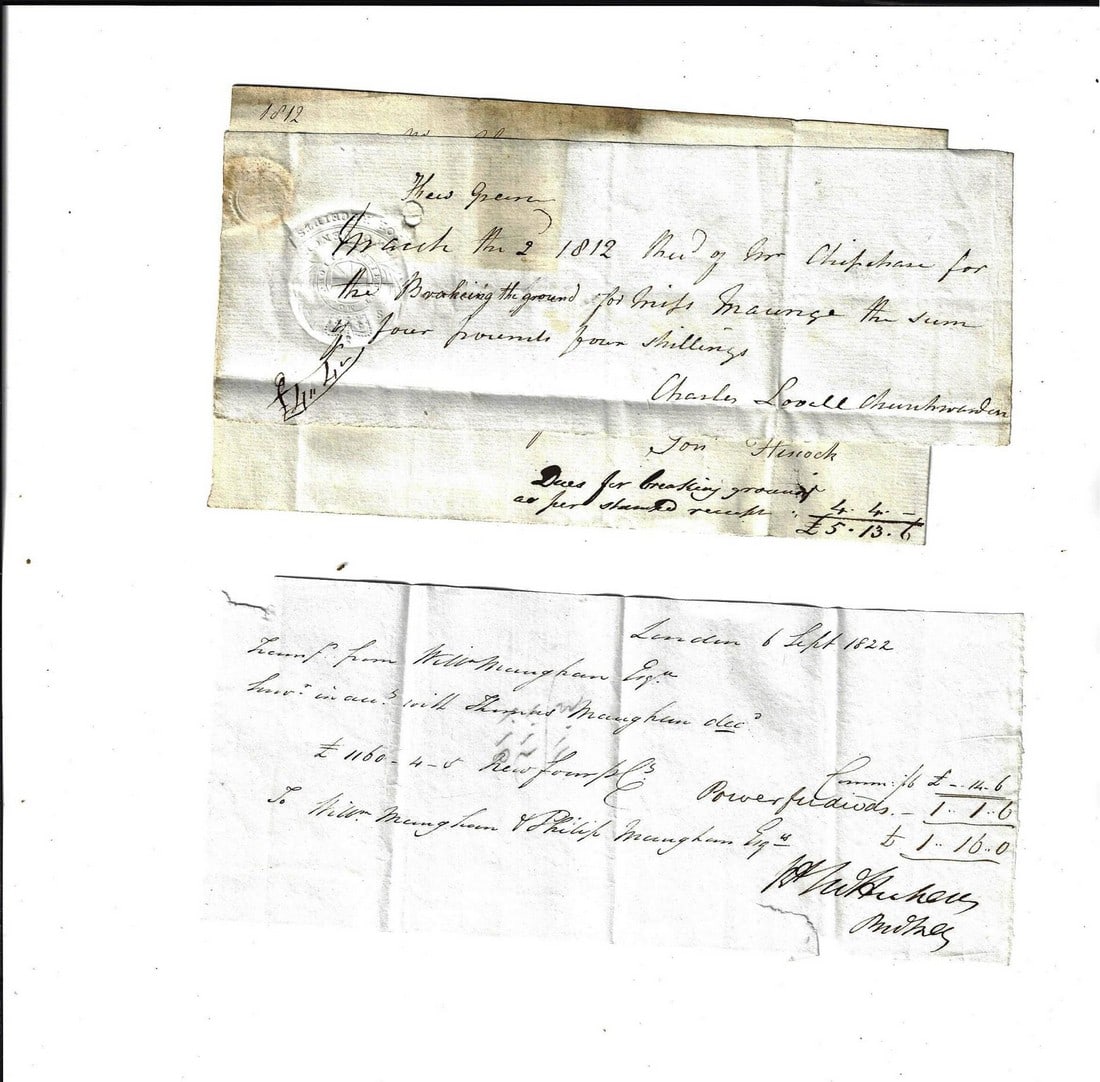 1812
Kew Green
March the 2 1812 Recd of Mr Chipchase for
the Brakeing the ground for Miss Maunge the sum
of four pounds four shillings
£4" 4s
Charles Lovell Churchwarden
Jon Hiscock
Dues for breaking ground
as per stamped receipt . 4. 4. –
£5 . 13 . 6
London 6 Sept 1822
Transf. from Willm Maughan Esqre
Survr in acct with Thomas Maughan decd
£ 1160 - 4 - 5 New four pr Cts
To Willm Maughan & Philip Maughan Esqrs
Commissn £ - . 14 . 6
Power for divids. - 1 . . 1 . 6
£ 1 . . 16 . . 0